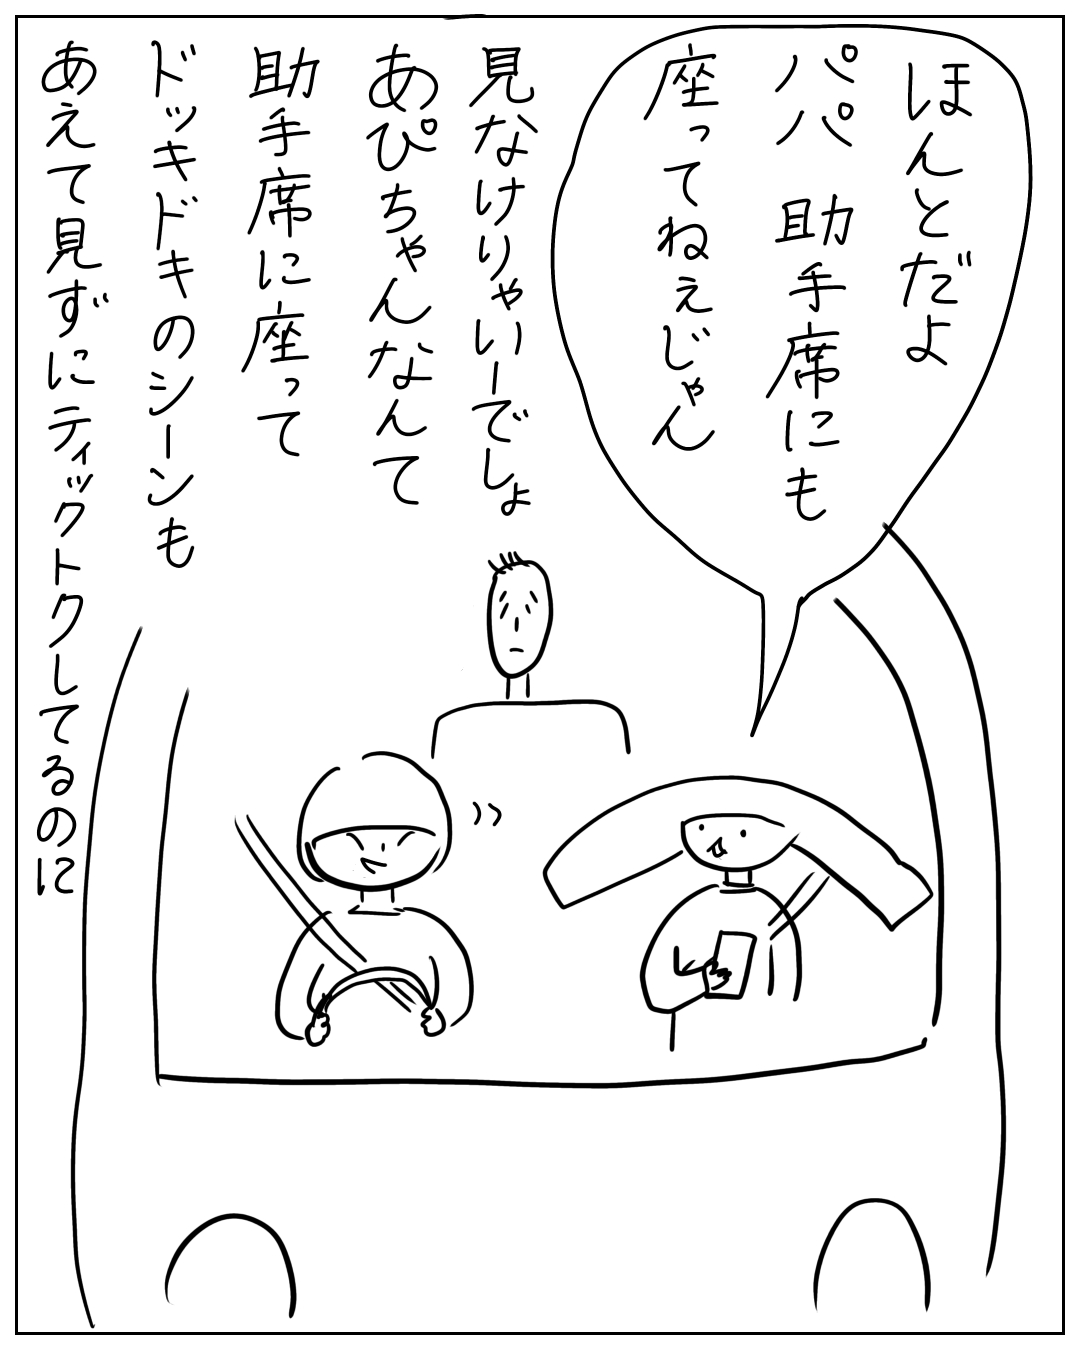 ほんとだよ
パパ 助手席にも
座ってねぇじゃん
見なけりゃいーでしょ
あぴちゃんなんて
助手席に座って
ドッキドキのシーンも
あえて見ずにティックトクしてるのに